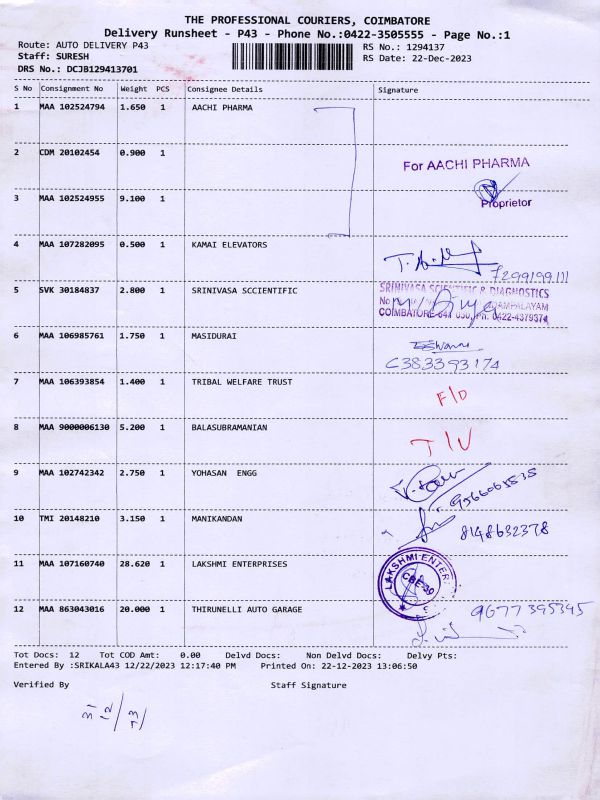 THE PROFESSIONAL COURIERS, COIMBATORE
Delivery Runsheet - P43 - Phone No.:0422-3505555 - Page No.:1
Route: AUTO DELIVERY P43
RS No.: 1294137
Staff: SURESH
RS Date: 22-Dec-2023
DRS No.: DCJB129413701
S No Consignment No Weight PCS Consignee Details Signature
1 MAA 102524794 1.650 1 AACHI PHARMA
2 CDM 20102454 0.900 1
For AACHI PHARMA
3 MAA 102524955 9.100 1
Proprietor
4 MAA 107282095 0.500 1 KAMAI ELEVATORS
7299199111
5 SVK 30184837 2.800 1 SRINIVASA SCCIENTIFIC
SRINIVASA SCIENTIFIC & DIAGNOSTICS
COIMBATORE-641 030, Ph: 0422-4379374
6 MAA 106985761 1.750 1 MASIDURAI
7 MAA 106393854 1.400 1 TRIBAL WELFARE TRUST
F/D
8 MAA 9000006130 5.200 1 BALASUBRAMANIAN
T/V
9 MAA 102742342 2.750 1 YOHASAN ENGG
10 TMI 20148210 3.150 1 MANIKANDAN
8148632378
11 MAA 107160740 28.620 1 LAKSHMI ENTERPRISES
LAKSHMI ENTER
CBE-30
12 MAA 863043016 20.000 1 THIRUNELLI AUTO GARAGE
9677395345
Tot Docs: 12 Tot COD Amt: 0.00 Delvd Docs: Non Delvd Docs: Delvy Pts:
Entered By :SRIKALA43 12/22/2023 12:17:40 PM Printed On: 22-12-2023 13:06:50
Verified By Staff Signature